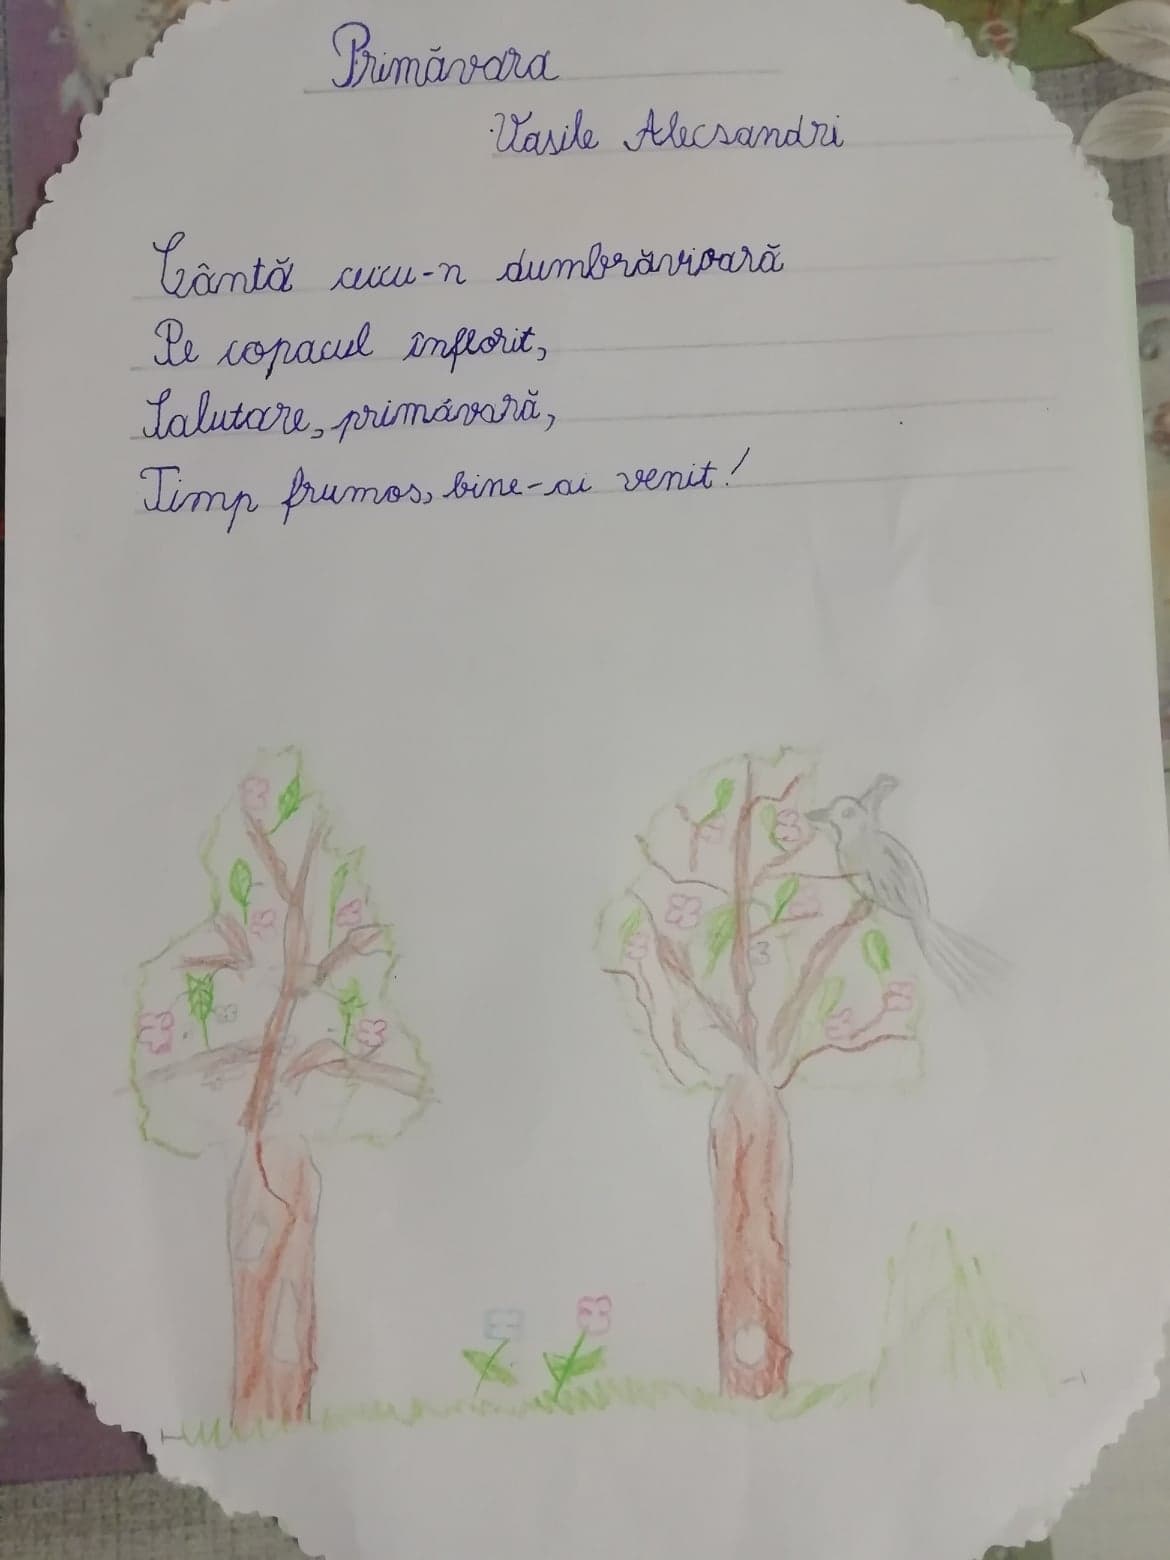 Primăvara
Vasile Alecsandri
Cântă cucu-n dumbrăvioară
Pe copacul înflorit,
Salutare, primăvară,
Timp frumos, bine-ai venit!